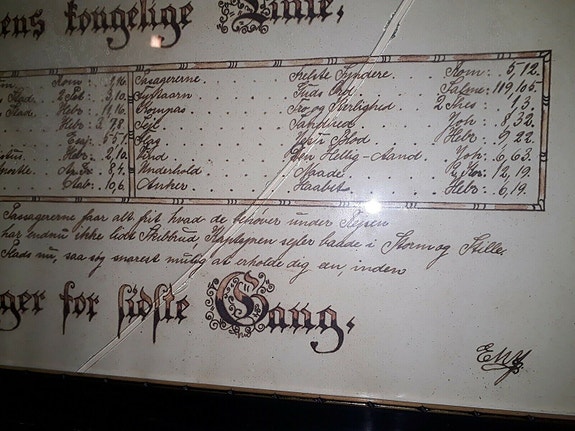 ens kongelige Linie,
Rom: 1,16. Passagererne Frelste Syndere. Rom: 5,12.
Stad. 2 Pet: 3,10. Fyrtaarn Guds Ord. Salme: 119,105.
Stad Hebr: 11,16. Kompas Tro og Kærlighed. 2 Thes: 1,3.
Hebr: 3,7,8 Sejl Sandhed. Joh: 8,32.
Esaj: 55,1. Flag Jesu Blod. Hebr: 9,22.
Hebr: 2,10. Vind Den Hellig-Aand. Joh: 6,63.
8,4. Underhold Naade 2 Kor: 12,9.
Aab: 10,6. Anker Haabet Hebr: 6,19.
Passagererne faar alt frit hvad de behøver under Rejsen
har endnu ikke lidt Skibbrud Kaptajnen sejler baade i Storm og Stille
Plads nu, saa sig snarest mulig at erholde dig en, inden
ger for sidste Gang.